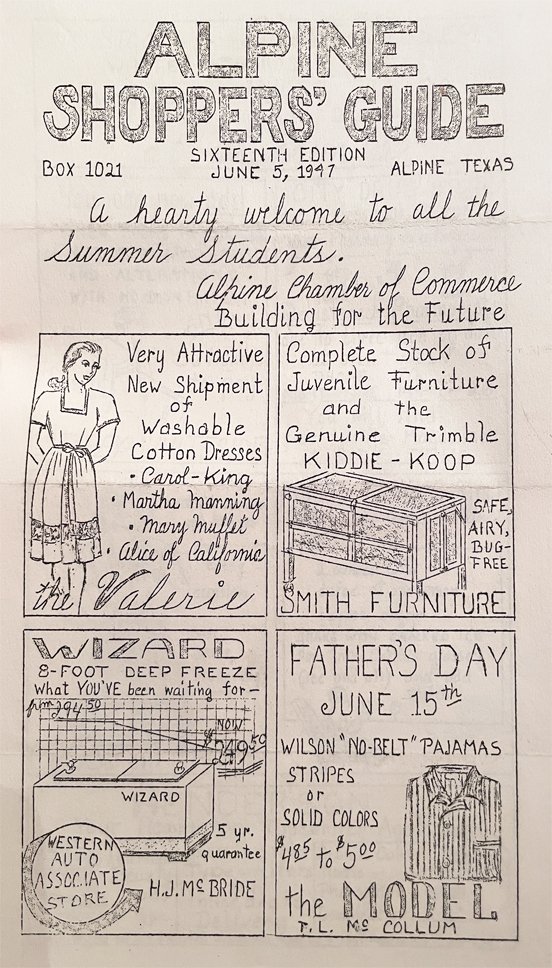 ALPINE
SHOPPERS' GUIDE
SIXTEENTH EDITION
BOX 1021 JUNE 5, 1947 ALPINE TEXAS
A hearty welcome to all the
Summer Students.
Alpine Chamber of Commerce
Building for the Future
Very Attractive
New Shipment
of
Washable
Cotton Dresses
• Carol-King
• Martha Manning
• Mary Muffet
• Alice of California
the Valerie
Complete Stock of
Juvenile Furniture
and the
Genuine Trimble
KIDDIE-KOOP
SAFE,
AIRY,
BUG-
FREE
SMITH FURNITURE
WIZARD
8-FOOT DEEP FREEZE
What YOU'VE been waiting for—
from 294.50
NOW
$249.50
WIZARD
5 yr.
guarantee
WESTERN
AUTO
ASSOCIATE
STORE
H.J. McBRIDE
FATHER'S DAY
JUNE 15th
WILSON "NO-BELT" PAJAMAS
STRIPES
or
SOLID COLORS
$4.85 to $5.00
the MODEL
T.L. McCOLLUM